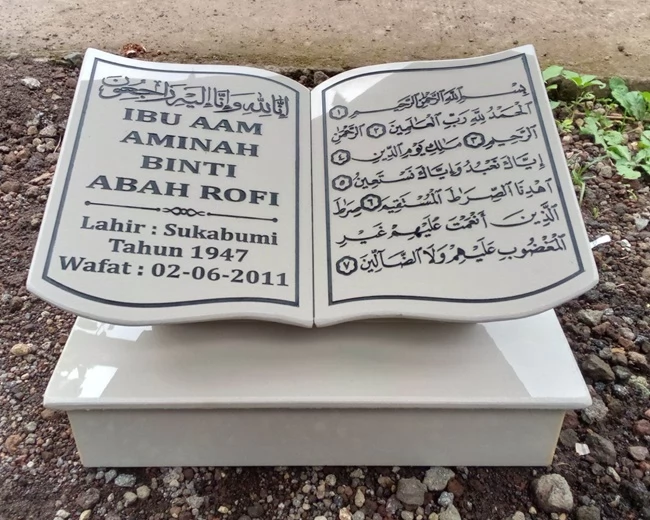 إنا لله وإنا إليه راجعون
IBU AAM
AMINAH
BINTI
ABAH ROFI
Lahir : Sukabumi
Tahun 1947
Wafat : 02-06-2011
بِسْمِ اللهِ الرَّحْمٰنِ الرَّحِيْمِ ١
اَلْحَمْدُ لِلّٰهِ رَبِّ الْعَالَمِيْنَ ٢ الرَّحْمٰنِ
الرَّحِيْمِ ٣ مَالِكِ يَوْمِ الدِّيْنِ ٤
اِيَّاكَ نَعْبُدُ وَاِيَّاكَ نَسْتَعِيْنُ ٥
اِهْدِنَا الصِّرَاطَ الْمُسْتَقِيْمَ ٦ صِرَاطَ
الَّذِيْنَ اَنْعَمْتَ عَلَيْهِمْ غَيْرِ
الْمَغْضُوْبِ عَلَيْهِمْ وَلَا الضَّالِّيْنَ ٧